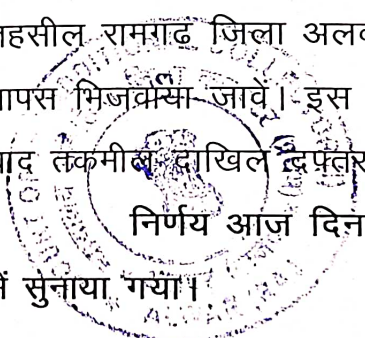 तहसील रामगढ जिला अलव
वापस भिजवाया जावें। इस
बाद तकमील दाखिल दफ्तर
निर्णय आज दिन
में सुनाया गया।